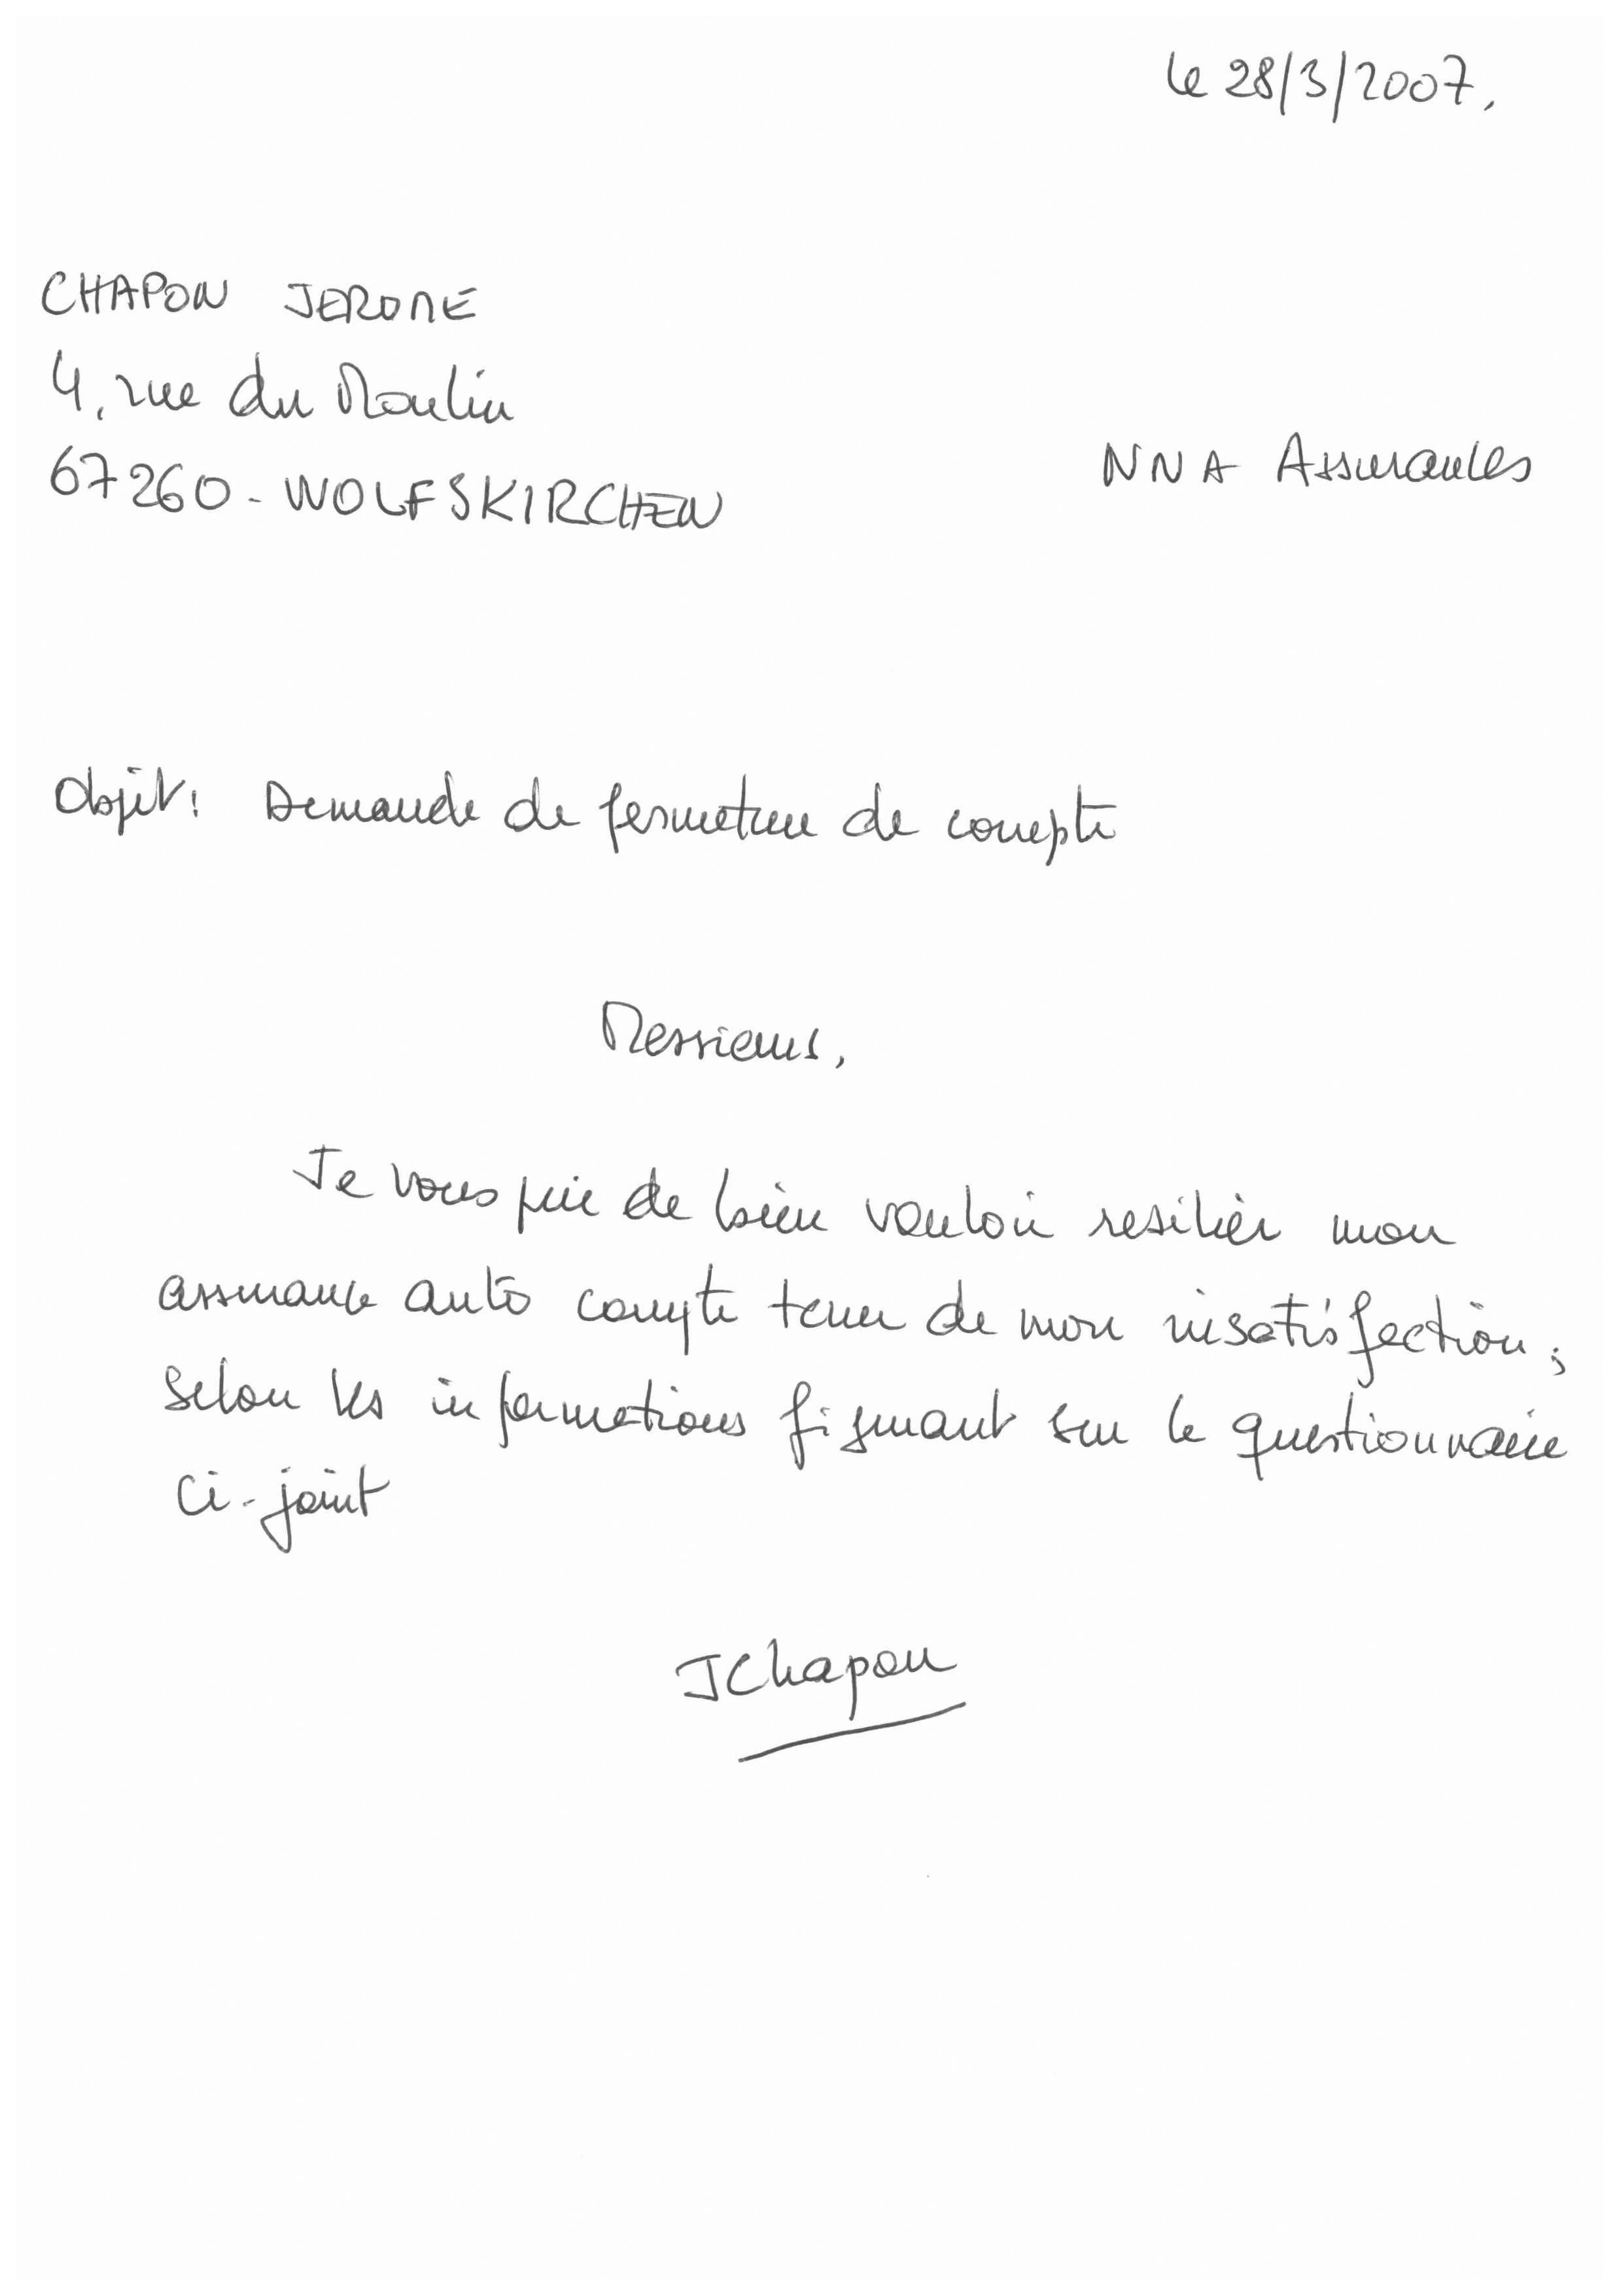 le 28/3/2007.
CHAPON JEROME
4, rue du Moulin
67260 - WOLFSKIRCHEN
NNA Assurances
Objet : Demande de fermeture de compte
Messieurs,
Je vous prie de bien vouloir resilier mon
assurance auto compte tenu de mon insatisfaction,
selon les informations figurant sur le questionnaire
ci-joint
JChapon